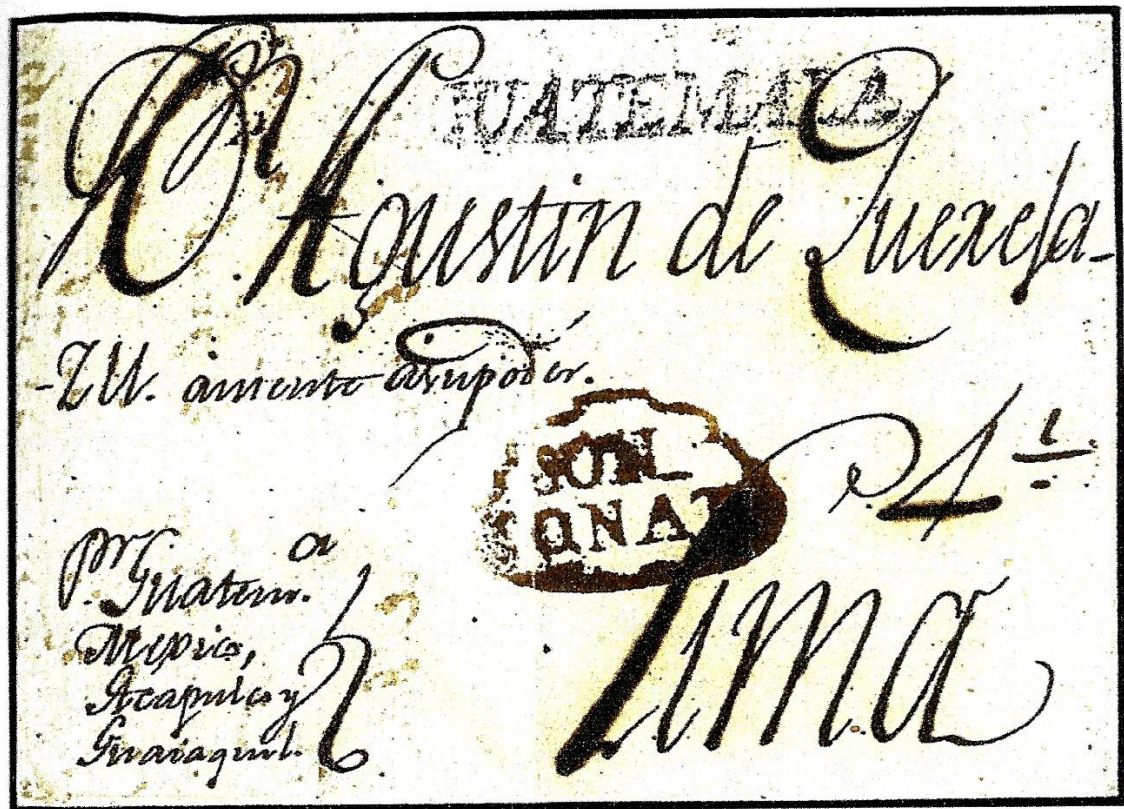 GUATEMALA
Dn. Agustin de Quexeja-
-zu. amente asupoder.
SON
SONAT
Lima
pr. Guatema.
Mexico,
Acapulco y
Guaiaquil.